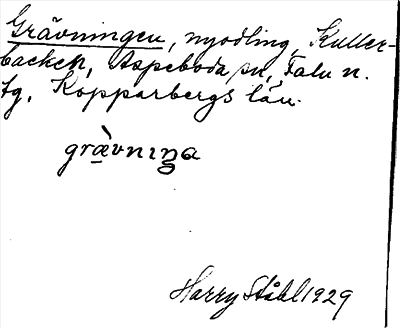 Grävningen, nyodling, Kuller-
backen, Aspeboda sn, Falu n.
tg, Kopparbergs län.
græ̀vniŋa
Harry Ståhl 1929